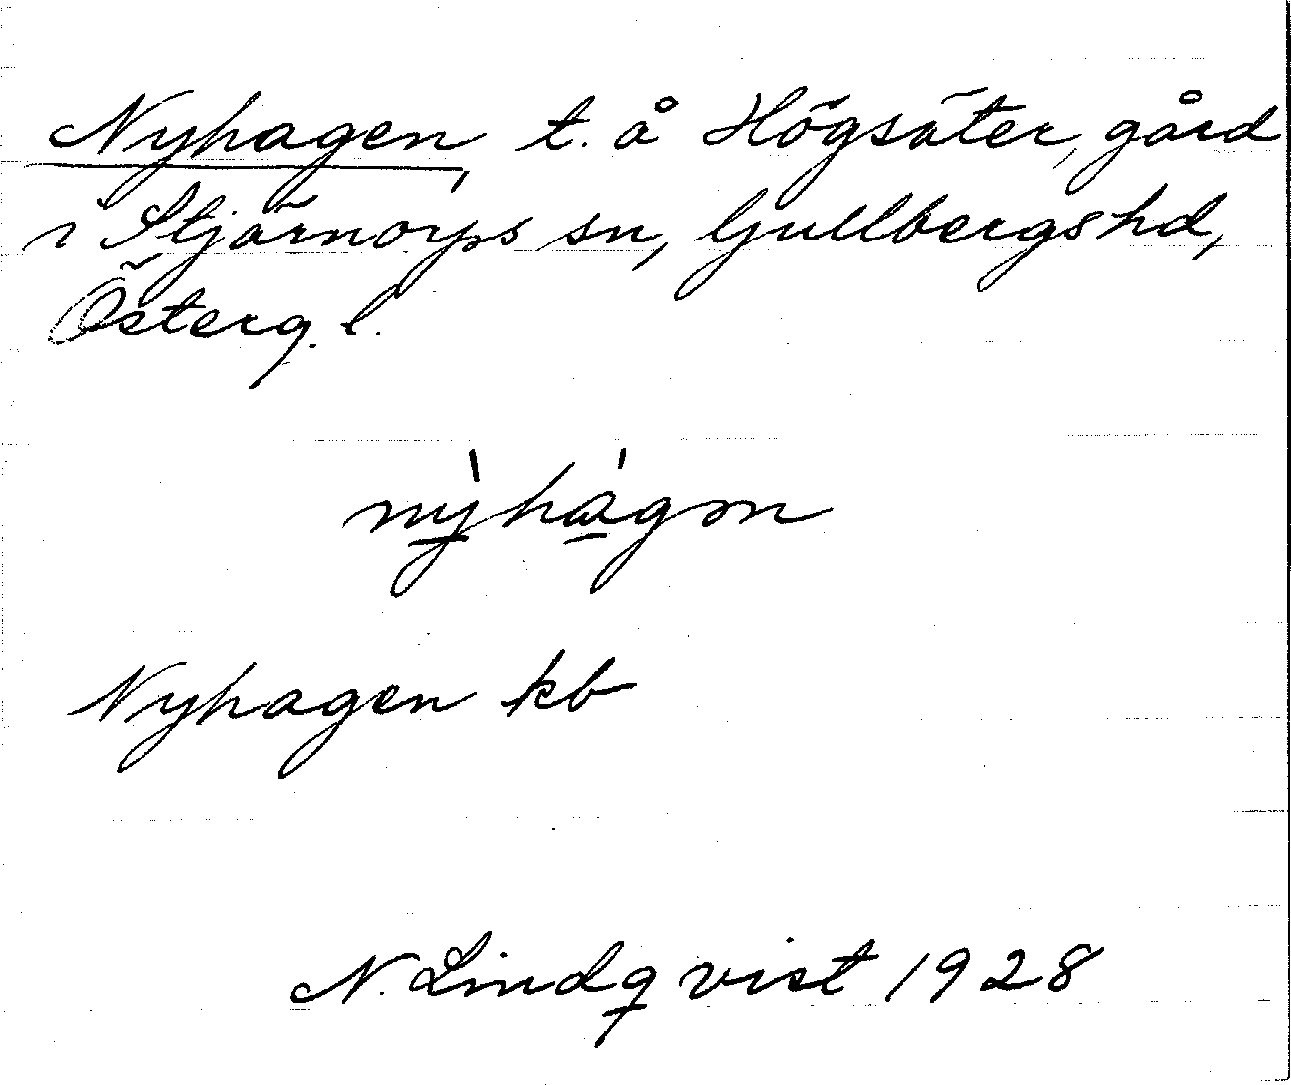 Nyhagen, t. å Högsäter, gård
i Stjärnorps sn, Gullbergs hd,
Österg. l.
nỳhágən
Nyhagen kb
N. Lindqvist 1928